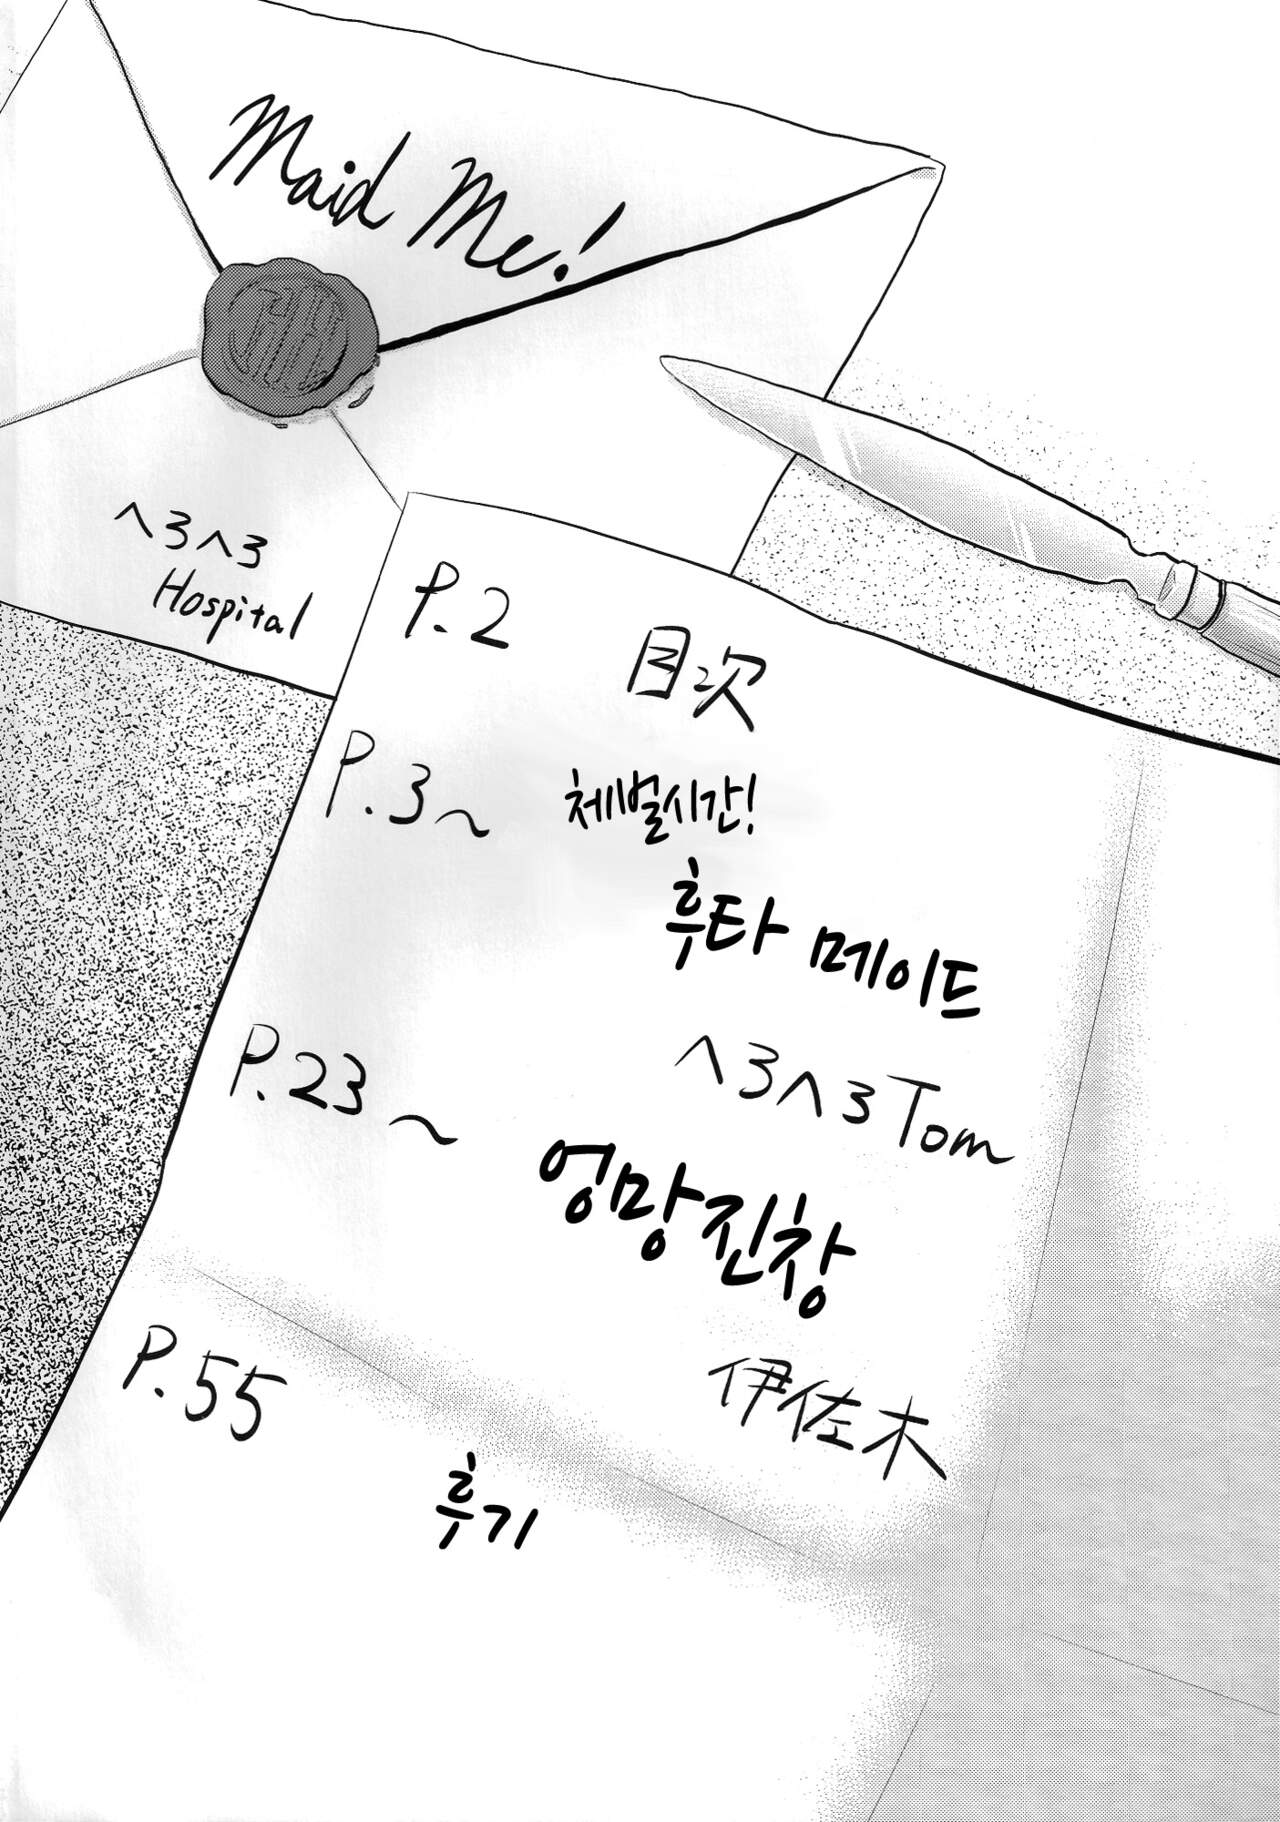 Maid Me!
へろへろ
Hospital
P.2 目次
P.3～ 체벌시간!
후타 메이드
へろへろTom
P.23～ 엉망진창
伊佐木
P.55 후기